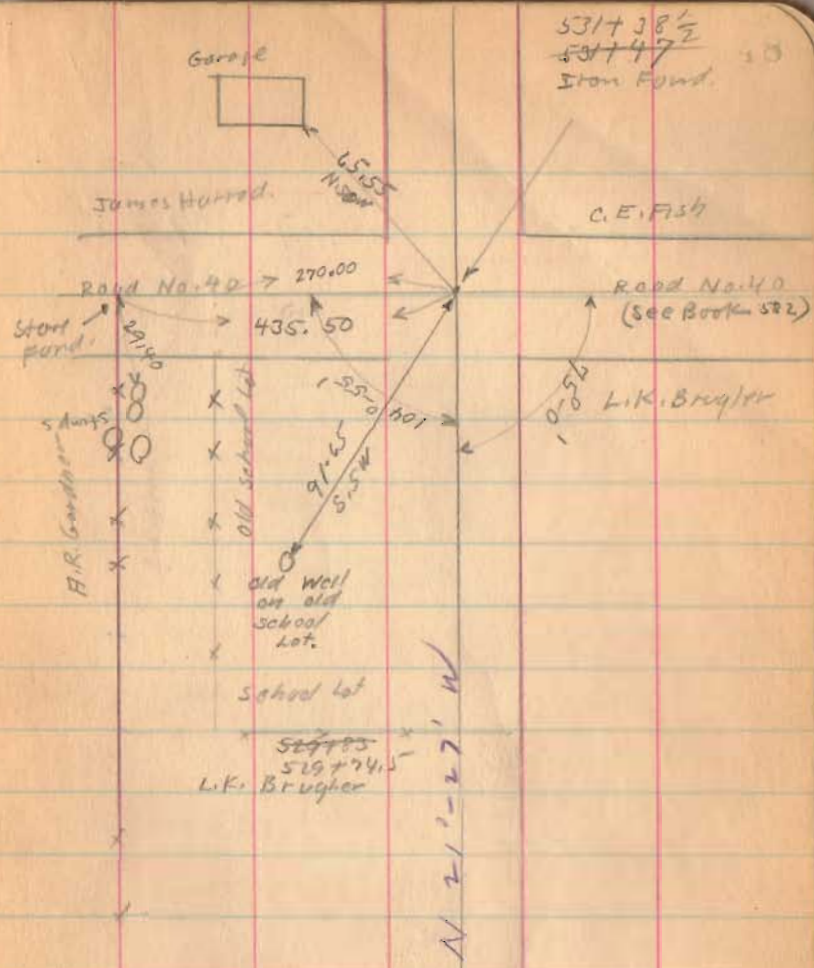 531+38½
531+47
Iron Found.
Garage
65.55
James Harrod.
C.E. Fish
Road No. 40
270.00
Road No. 40
(See Book 502)
Stone
Found.
29.40
435.50
104°-55'
L.K. Brugler
5 dumps
A.R. Gardner
Old School Lot
91.65
S.5W
Old Well
on old
school
Lot.
School Lot
529+85
529+74.5
L.K. Brugher
N 21°-27' W